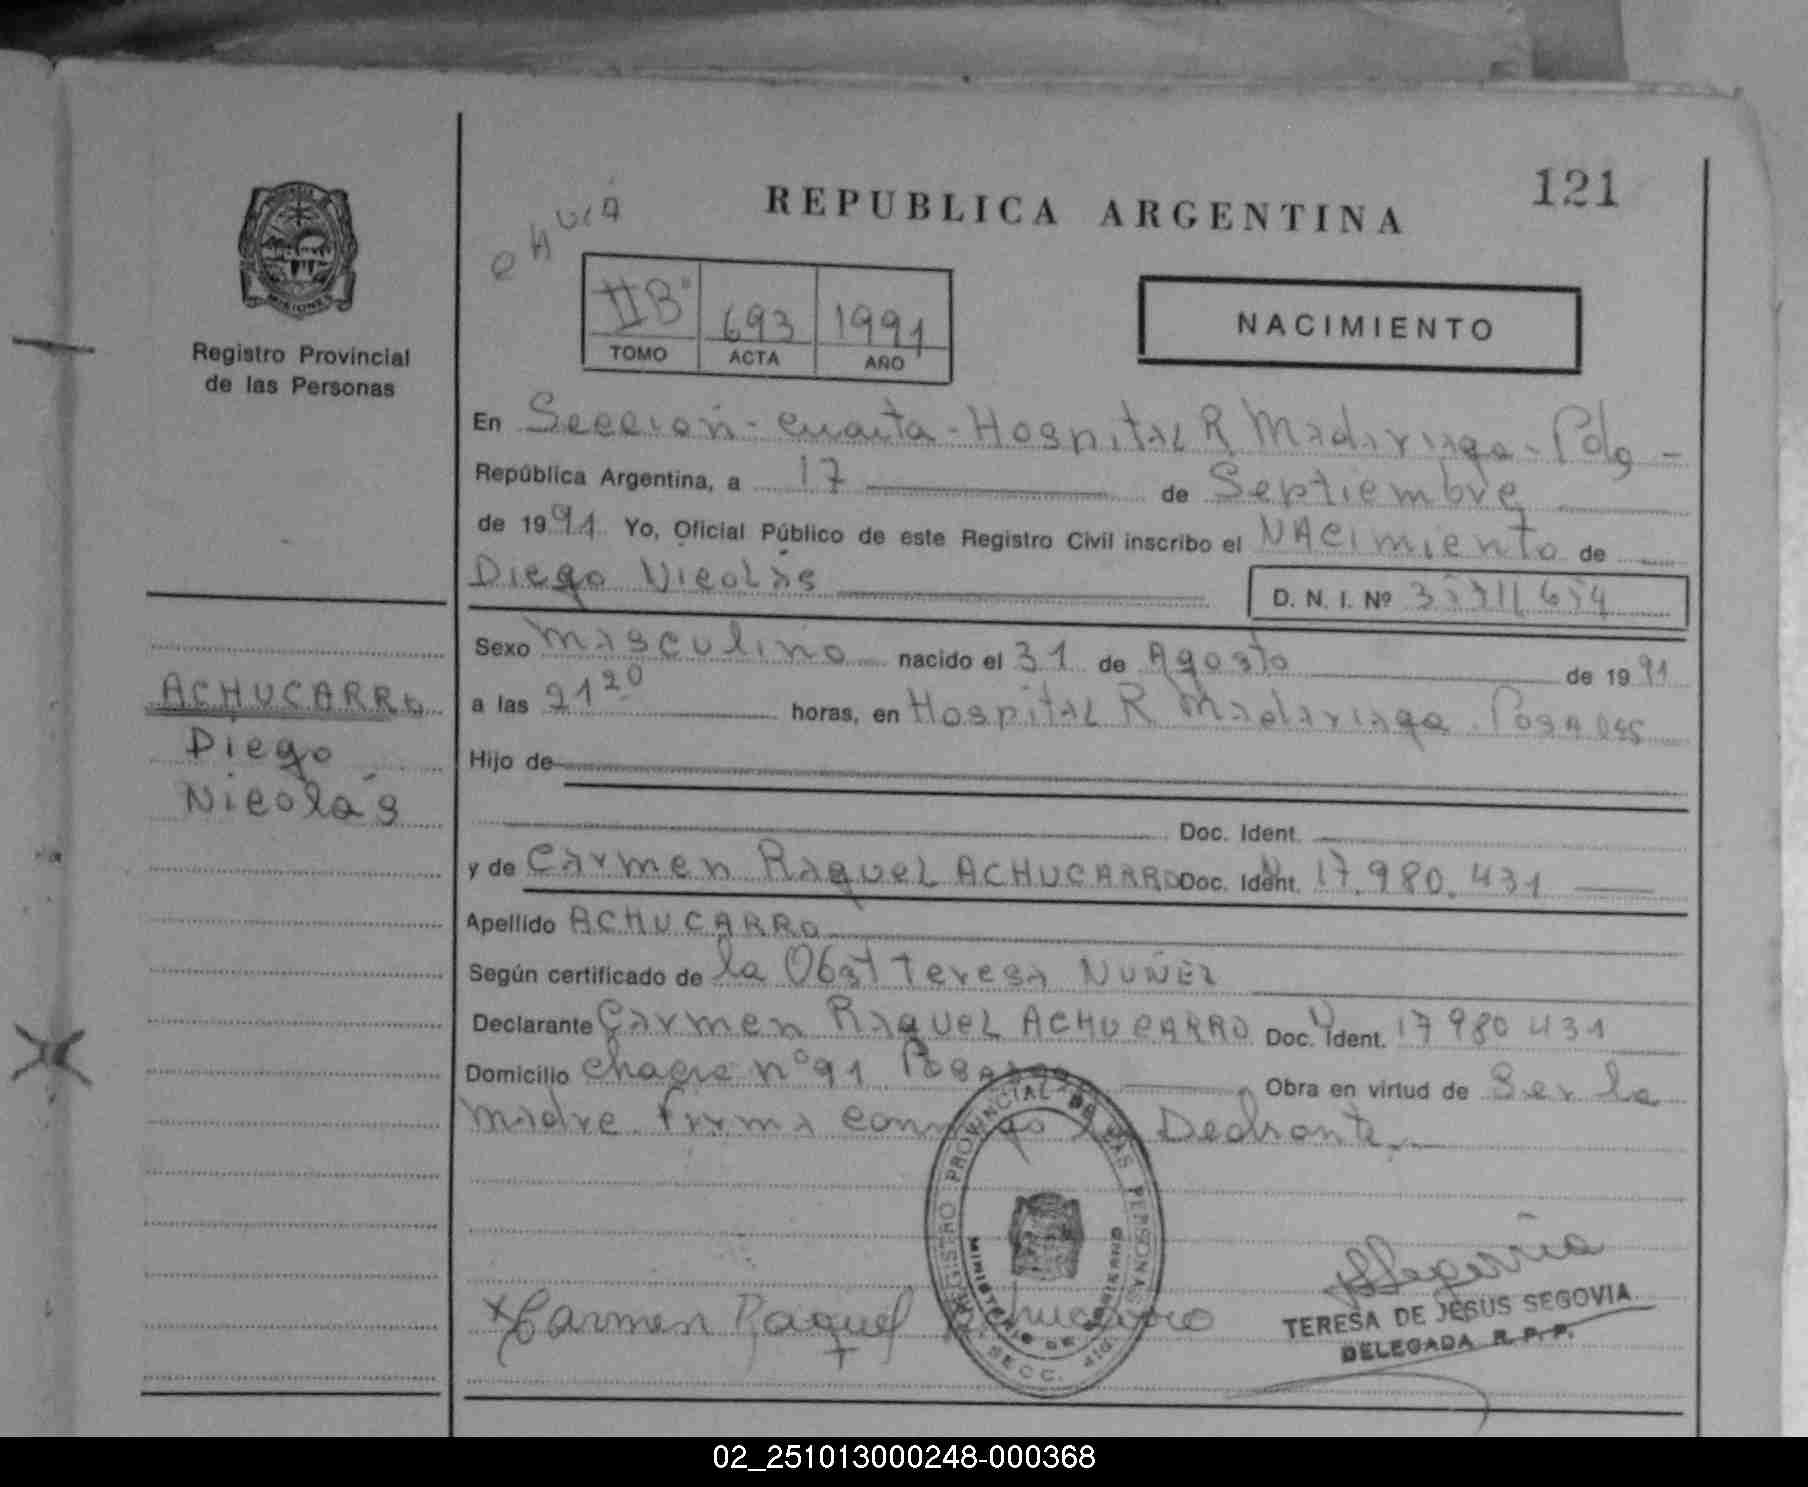 121
REPUBLICA ARGENTINA
NACIMIENTO
IIB° 693 1991
TOMO ACTA AÑO
Registro Provincial
de las Personas
ACHUCARRO
Diego
Nicolás
En Sección - cuarta - Hospital R Madariaga - Pdg -
República Argentina, a 17 de Septiembre
de 1991 Yo, Oficial Público de este Registro Civil inscribo el NAcimiento de
Diego Nicolás D. N. I. Nº
Sexo Masculino nacido el 31 de Agosto de 1991
a las 21 20 horas, en Hospital R Madariaga. Posadas
Hijo de
Doc. Ident.
y de Carmen Raquel ACHUCARRO Doc. Ident. 17.980.431
Apellido ACHUCARRO
Según certificado de la Obst Teresa NUÑEZ
Declarante Carmen Raquel ACHUCARRO Doc. Ident. 17 980 431
Domicilio chacra n° 91 Posadas Obra en virtud de Ser la
madre. Firma conmigo la Declarante
REGISTRO PROVINCIAL DE LAS PERSONAS
MINISTERIO DE GOBIERNO
SECC.
Carmen Raquel Achucarro
TERESA DE JESUS SEGOVIA
DELEGADA R. P. P.
02_251013000248-000368